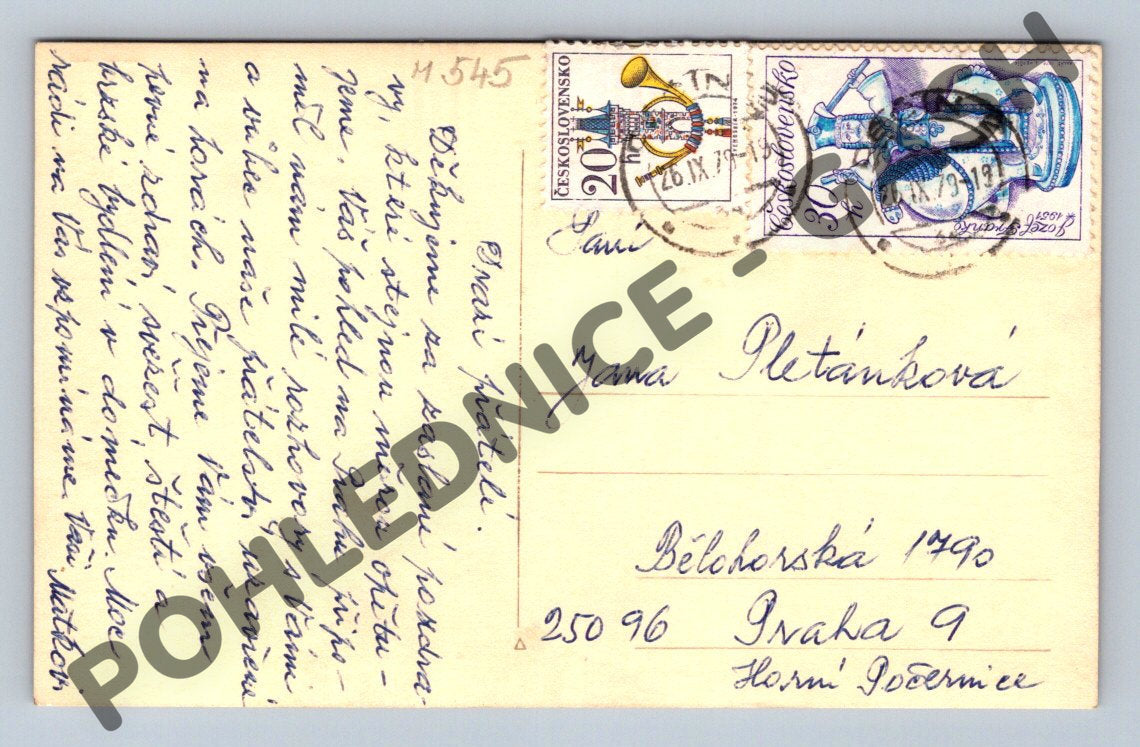 M 545
Drazí přátelé.
Děkujeme za zaslání pozdra-
vy, které stejnou měrou opětu-
jeme. Váš pohled na Prahu připo-
měl nám milé rozhovory s Vámi
a vůbec naše přátelství uzavřené
na horách. Přejeme Vám všem
pevné zdraví, svěžest, štěstí a
hezké bydlení v domečku. Moc
rádi na Vás vzpomínáme. Vaši Matkovi
ČESKOSLOVENSKO
20
26.IX.79-19
Československo
30 h
Jozef Franko
* 1931
26.IX.79-19
Paní
Jana Pletánková
Bělohorská 1790
250 96 Praha 9
Horní Počernice
POHLEDNICE -